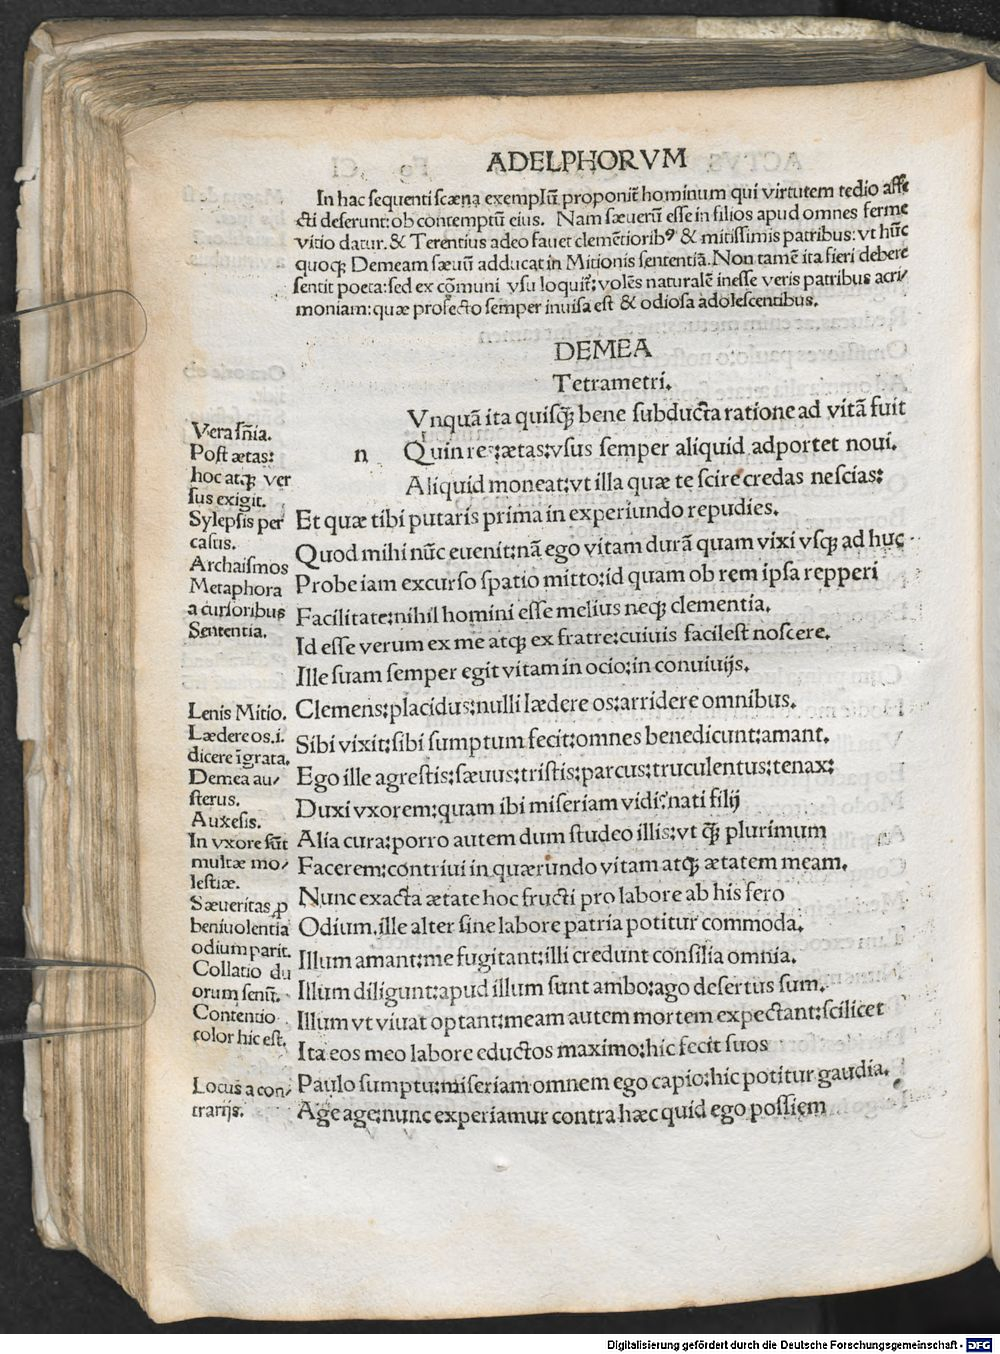 ADELPHORVM
In hac sequenti scæna exemplū proponit̄ hominum qui virtutem tedio affe
cti deserunt: ob contemptū eius. Nam sæuerū esse in filios apud omnes ferme
vitio datur. & Terentius adeo fauet clemētiorib⁹ & mitissimis patribus: vt hūc
quoq; Demeam sæuū adducat in Mitionis sententiā. Non tamē ita fieri debere
sentit poeta: sed ex cōmuni vsu loquit̄: volēs naturalē inesse veris patribus acri/
moniam: quæ profecto semper inuisa est & odiosa adolescentibus.
DEMEA
Tetrametri.
n
Vnquā ita quisq̄ bene subducta ratione ad vitā fuit
Quin res: ætas: vsus semper aliquid adportet noui.
Aliquid moneat: vt illa quæ te scire credas nescias:
Et quæ tibi putaris prima in experiundo repudies.
Quod mihi nūc euenit: nā ego vitam durā quam vixi vsq; ad huc
Probe iam excurso spatio mitto: id quam ob rem ipsa repperi
Facilitate: nihil homini esse melius neq; clementia.
Id esse verum ex me atq; ex fratre: cuiuis facilest noscere.
Ille suam semper egit vitam in ocio: in conuiuijs.
Clemens: placidus: nulli lædere os: arridere omnibus.
Sibi vixit: sibi sumptum fecit: omnes benedicunt: amant.
Ego ille agrestis: sæuus: tristis: parcus: truculentus: tenax:
Duxi vxorem: quam ibi miseriam vidi? nati filij
Alia cura: porro autem dum studeo illis: vt q̄ plurimum
Facerem: contriui in quærundo vitam atq; ætatem meam.
Nunc exacta ætate hoc fructi pro labore ab his fero
Odium. ille alter sine labore patria potitur commoda.
Illum amant: me fugitant: illi credunt consilia omnia.
Illum diligunt: apud illum sunt ambo: ago desertus sum.
Illum vt viuat optant: meam autem mortem expectant: scilicet
Ita eos meo labore eductos maximo: hic fecit suos
Paulo sumptu: miseriam omnem ego capio: hic potitur gaudia.
Age age: nunc experiamur contra hæc quid ego possiem
Vera sn̄ia.
Post ætas:
hoc atq; ver
sus exigit.
Sylepsis per
casus.
Archaismos
Metaphora
a cursoribus
Sententia.
Lenis Mitio.
Lædere os .i.
dicere īgrata.
Demea au/
sterus.
Auxesis.
In vxore sūt
multæ mo/
lestiæ.
Sæueritas ꝓ
beniuolentia
odium parit.
Collatio du
orum senū.
Contentio
color hic est.
Locus a con/
trarijs.
Digitalisierung gefördert durch die Deutsche Forschungsgemeinschaft - DFG